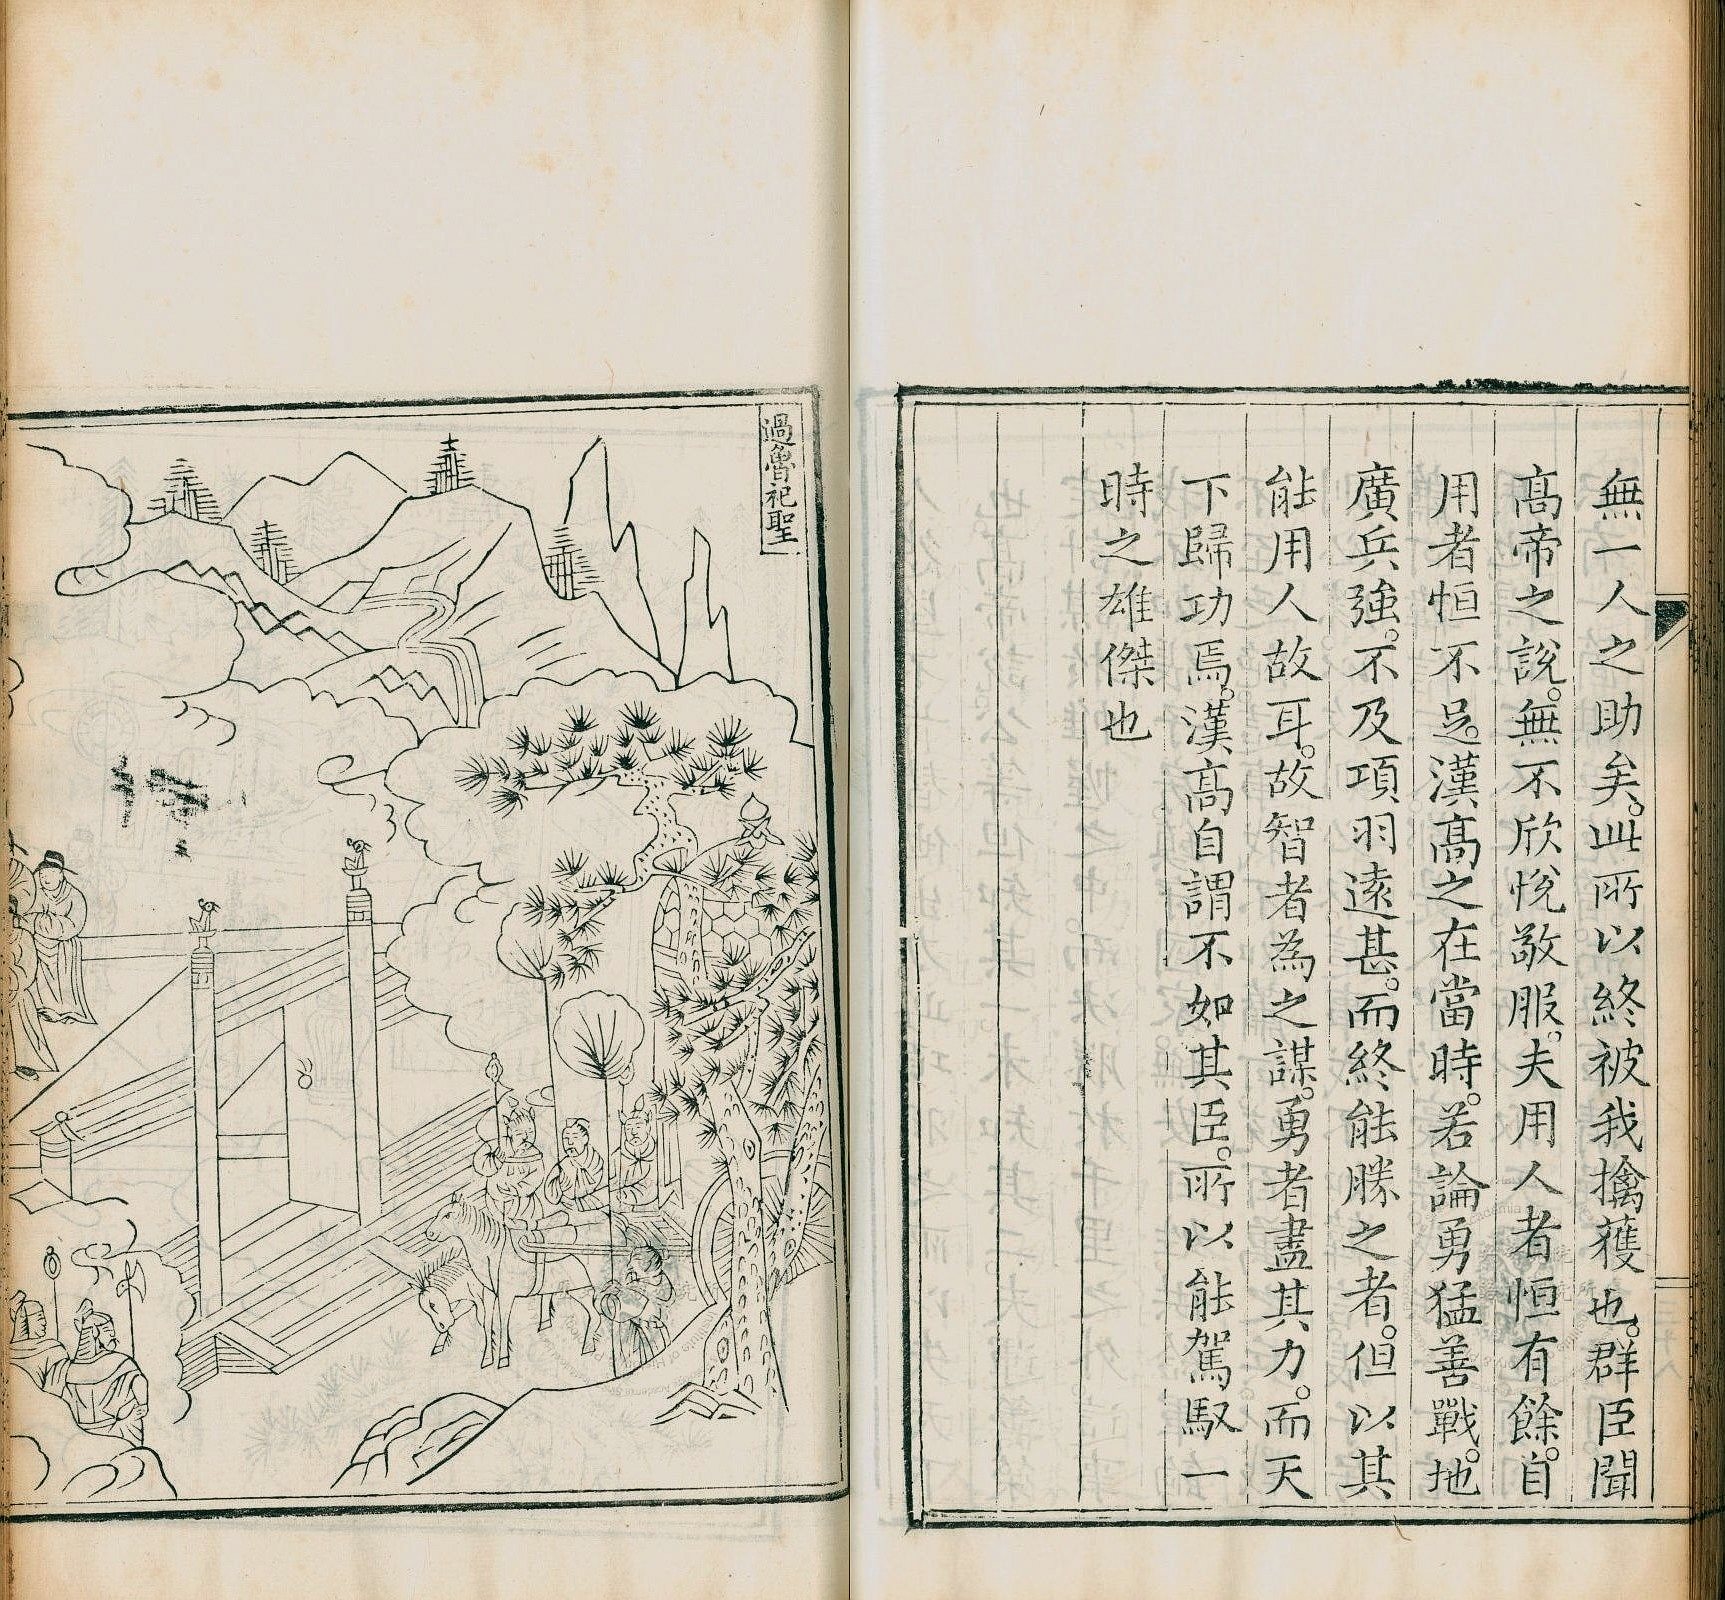 無一人之助矣。此所以終被我擒獲也。群臣聞
髙帝之說。無不欣悅敬服。夫用人者恒有餘。自
用者恒不足。漢髙之在當時。若論勇猛善戰。地
廣兵強。不及項羽遠甚。而終能勝之者。但以其
能用人故耳。故智者為之謀。勇者盡其力。而天
下歸功焉。漢髙自謂不如其臣。所以能駕馭一
時之雄傑也
過魯祀聖